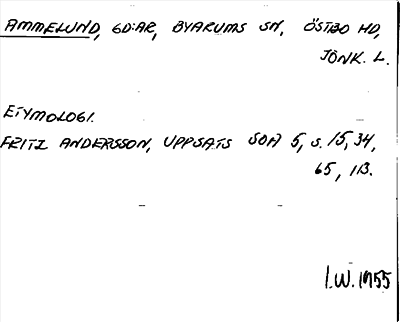 AMMELUND, GD:AR, BYARUMS SN, ÖSTBO HD,
JÖNK. L.
ETYMOLOGI.
FRITZ ANDERSSON, UPPSATS SOA 5, s. 15, 34,
65, 113.
I.W. 1955